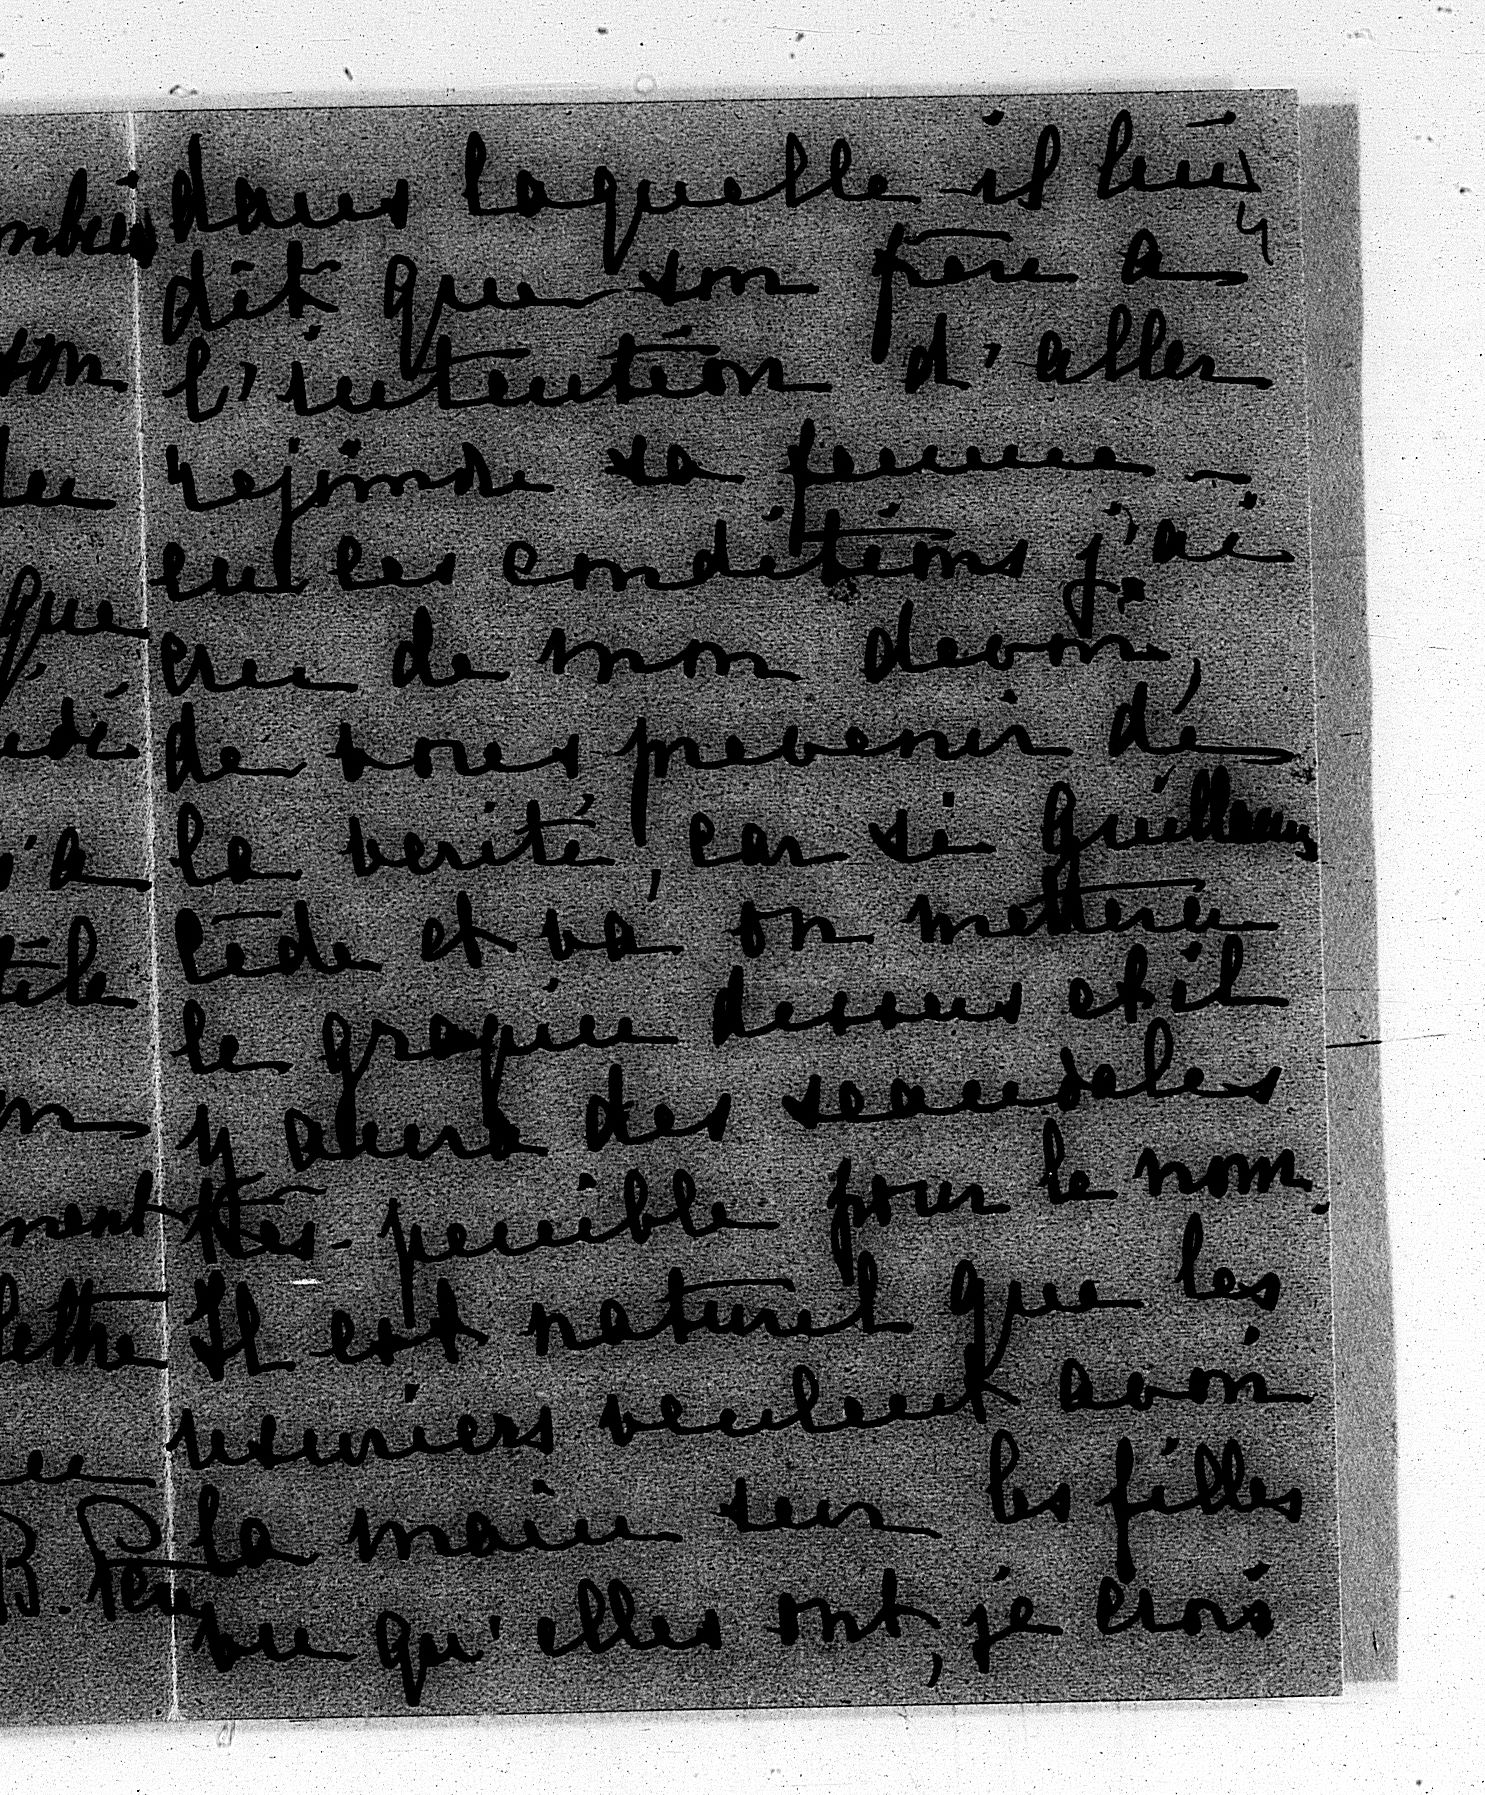 dans laquelle il lui
4
dit que son père a
l'intention d'aller
rejoindre sa femme –
en les conditions j'ai
cru de mon devoir,
de vous prevenir de
la verité, car si Guillaume
cède et va on mettra
le grapin dessus et il
y aura des scandales
très penible pour le nom.
Il est naturel que les
usuriers veulent avoir
la main sur les filles
vu qu'elles ont, je crois
son
que
lettre